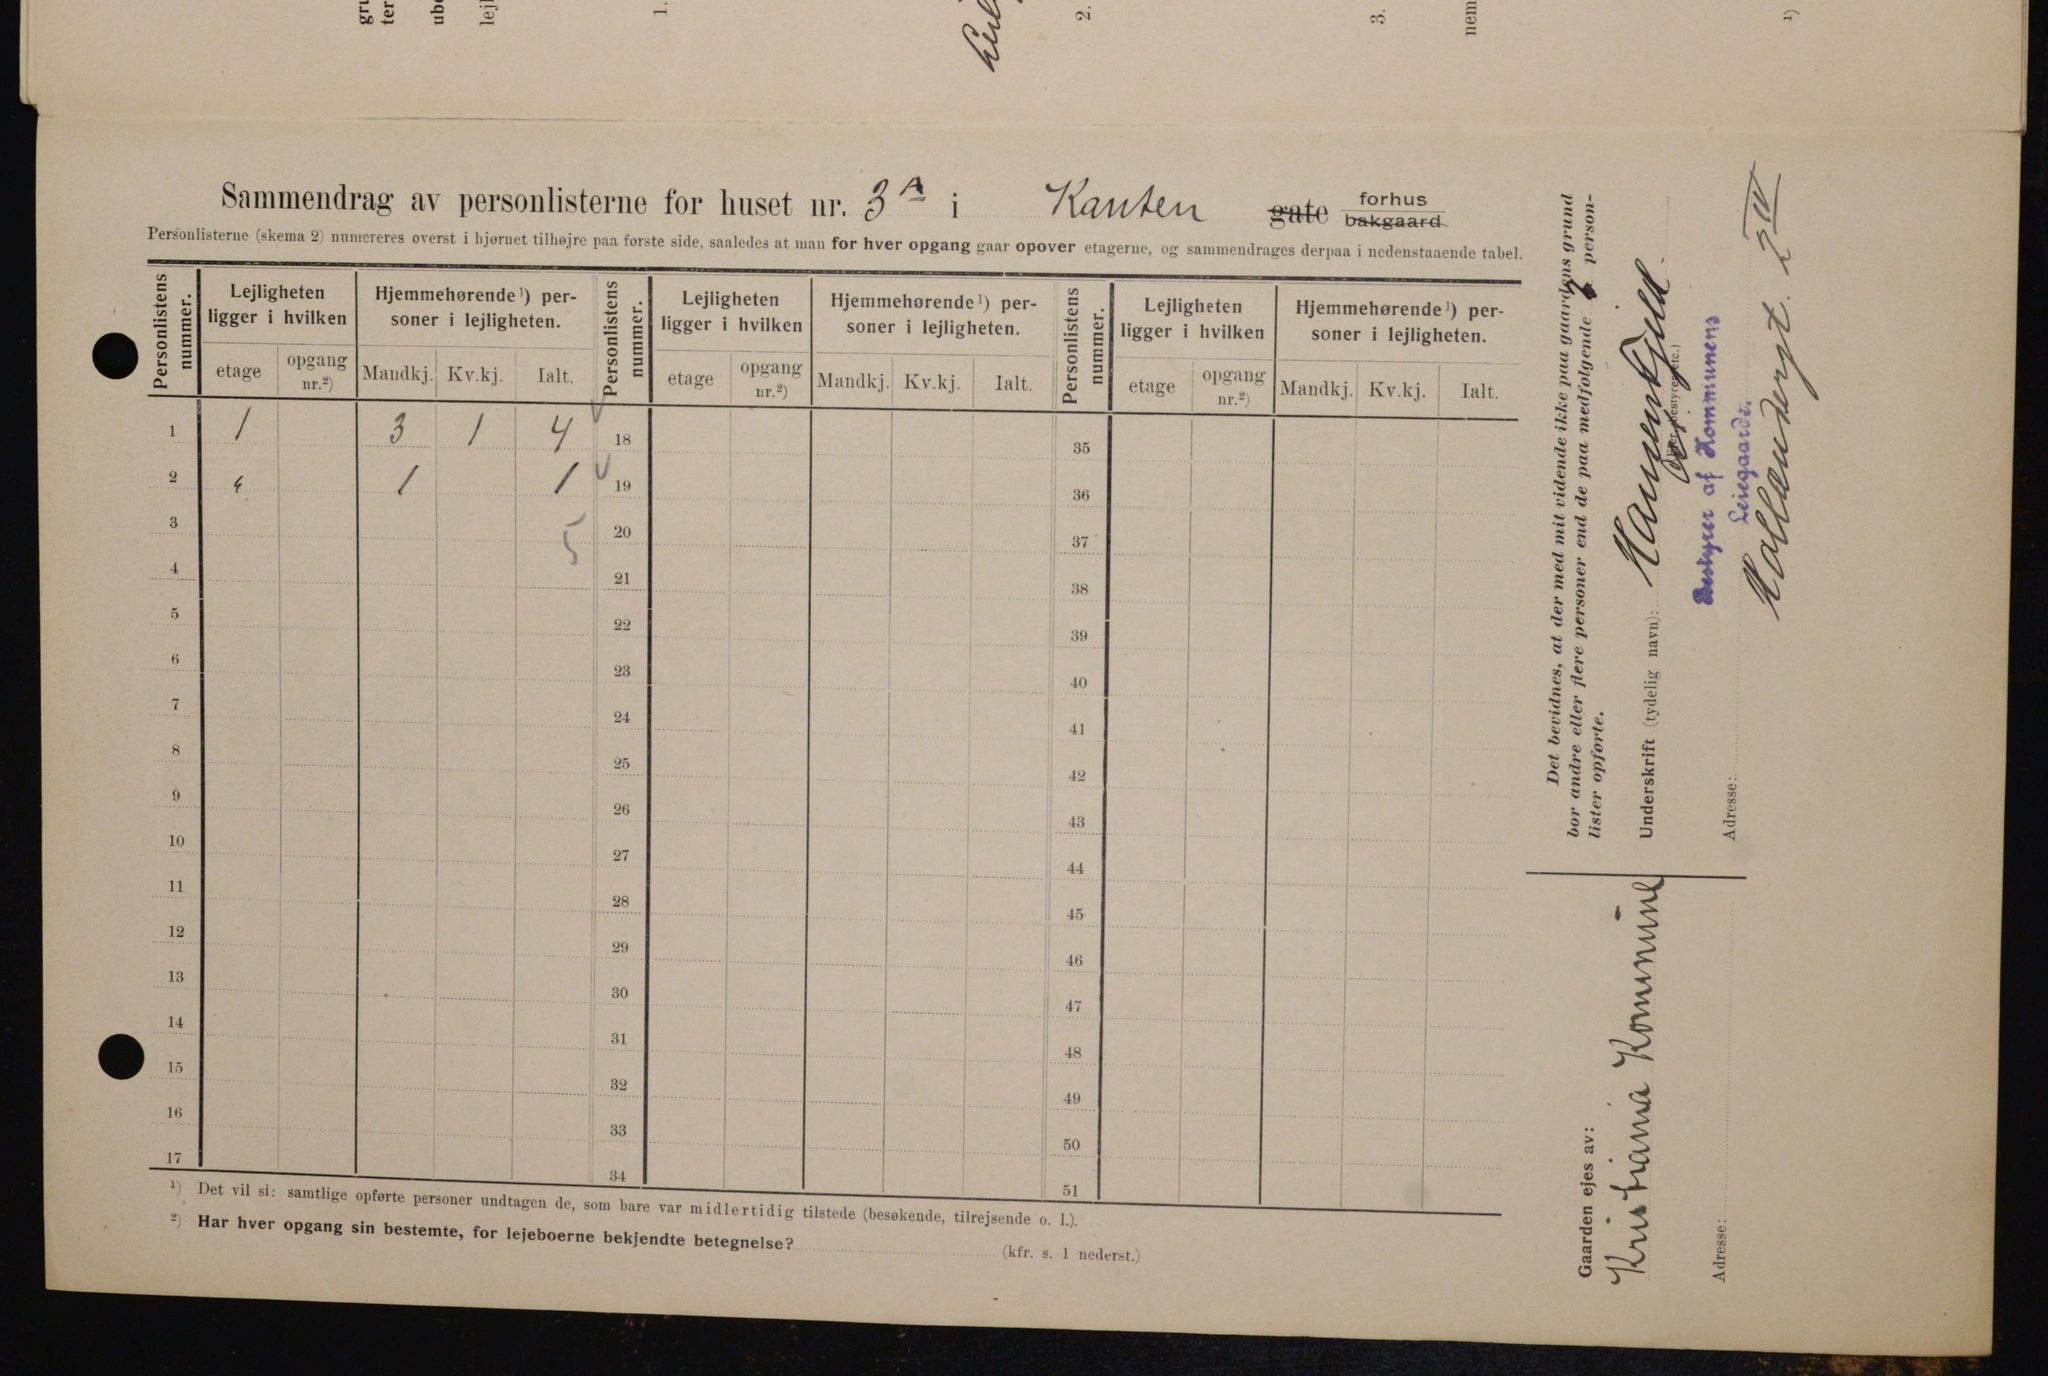 gru
ter
ube
lejl
1.
2.
3.
nem
1)
Sammendrag av personlisterne for huset nr. 3 A i Kanten gate forhus bakgaard
Personlisterne (skema 2) numereres øverst i hjørnet tilhøjre paa første side, saaledes at man for hver opgang gaar opover etagerne, og sammendrages derpaa i nedenstaaende tabel.
Personlistens nummer. Lejligheten ligger i hvilken Hjemmehørende ¹) personer i lejligheten. Personlistens nummer. Lejligheten ligger i hvilken Hjemmehørende ¹) personer i lejligheten. Personlistens nummer. Lejligheten ligger i hvilken Hjemmehørende ¹) personer i lejligheten.
etage opgang nr.²) Mandkj. Kv.kj. Ialt. etage opgang nr.²) Mandkj. Kv.kj. Ialt. etage opgang nr.²) Mandkj. Kv.kj. Ialt.
1 1 3 1 4 18 35
2 " 1 1 19 36
3 5 20 37
4 21 38
5 22 39
6 23 40
7 24 41
8 25 42
9 26 43
10 27 44
11 28 45
12 29 46
13 30 47
14 31 48
15 32 49
16 33 50
17 34 51
¹) Det vil si: samtlige opførte personer undtagen de, som bare var midlertidig tilstede (besøkende, tilrejsende o. l.).
²) Har hver opgang sin bestemte, for lejeboerne bekjendte betegnelse? (kfr. s. 1 nederst.)
Det bevidnes, at der med mit vidende ikke paa gaardens grund
bor andre eller flere personer end de paa medfølgende person-
lister opførte.
Underskrift (tydelig navn):
(Ejer, bestyrer etc.)
Bestyrer af Kommunens
Leiegaarde.
Adresse:
Gaarden ejes av:
Kristiania Kommune
Adresse: